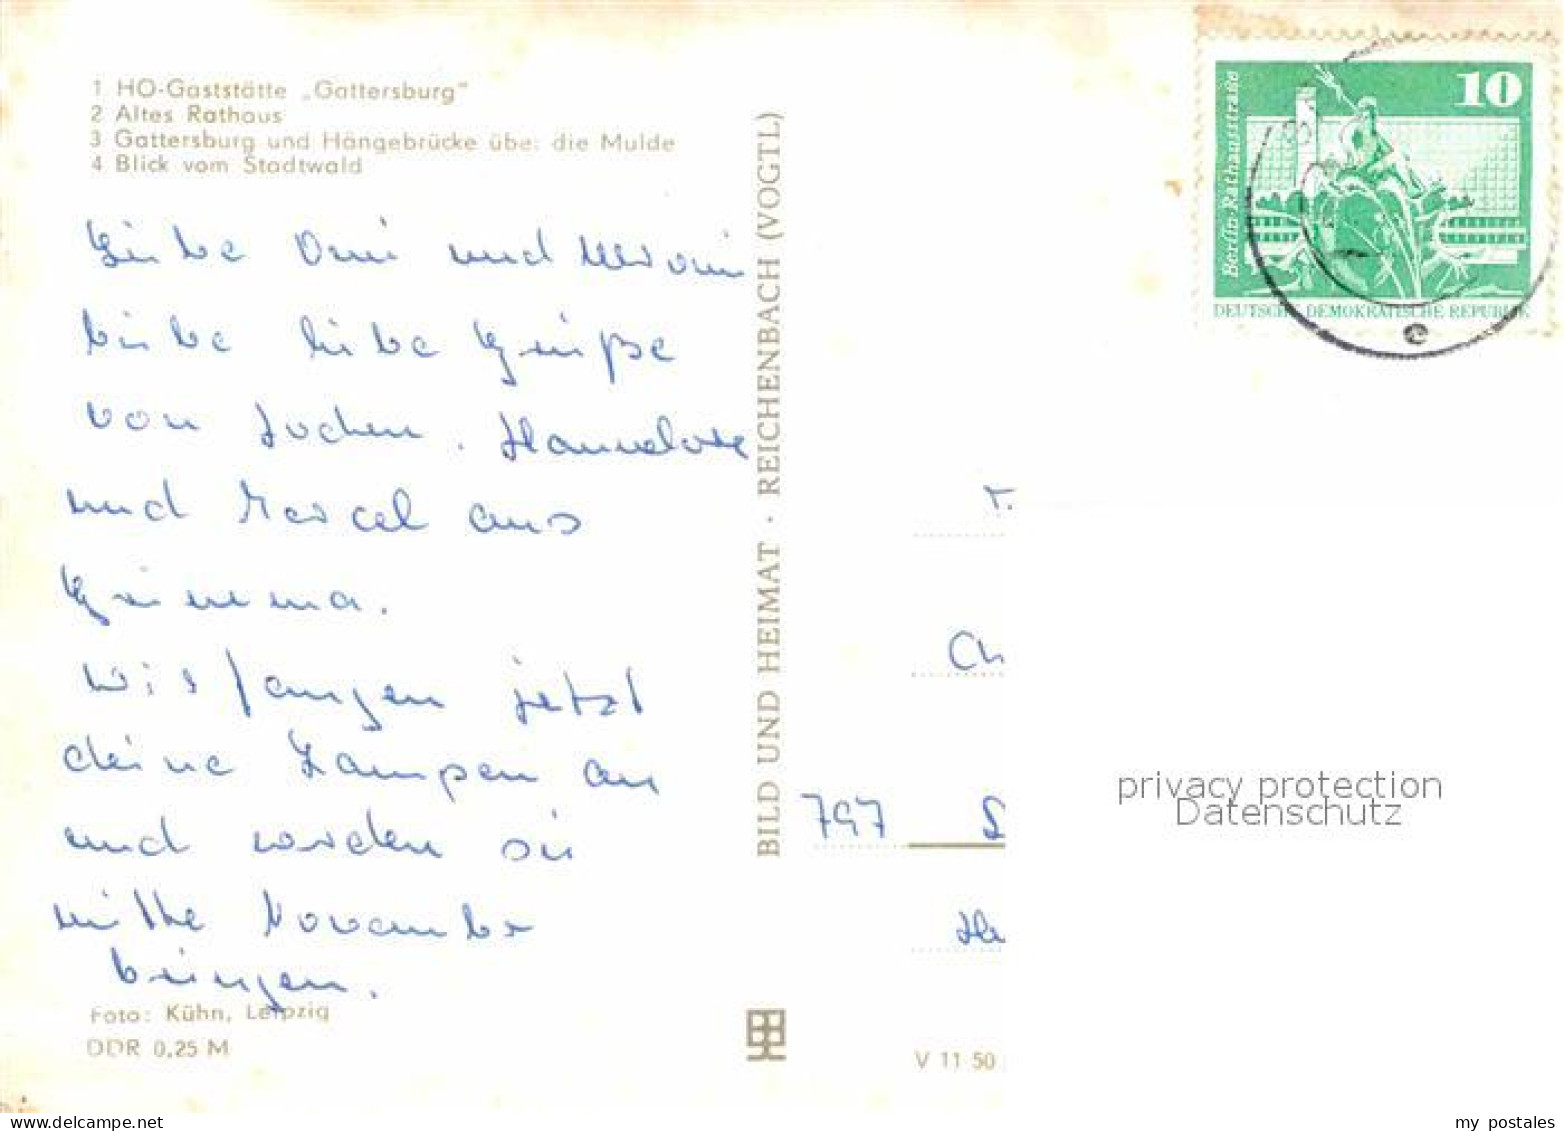 1 HO-Gaststätte „Gattersburg"
2 Altes Rathaus
3 Gattersburg und Hängebrücke über die Mulde
4 Blick vom Stadtwald
Liebe Omi und
liebe Grüße
von Jochen, Hannelore
und Marcel aus
Grimma.
Wir fangen jetzt
deine Lampen an
und werden sie
mitte November
bringen.
Foto: Kühn, Leipzig
DDR 0,25 M
BILD UND HEIMAT · REICHENBACH (VOGTL)
V 11 50
10
Berlin-Rathausstraße
DEUTSCHE DEMOKRATISCHE REPUBLIK
Ch
797 S
He
privacy protection
Datenschutz
my postales